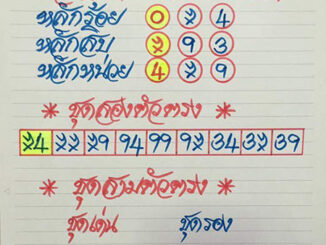 หลักร้อย 0 4
หลักสิบ 9 3
หลักหน่วย 4 9
* ชุดสองตัวตรง *
94 99 34 39
* ชุดสามตัวตรง *
ชุดเด่น ชุดรอง